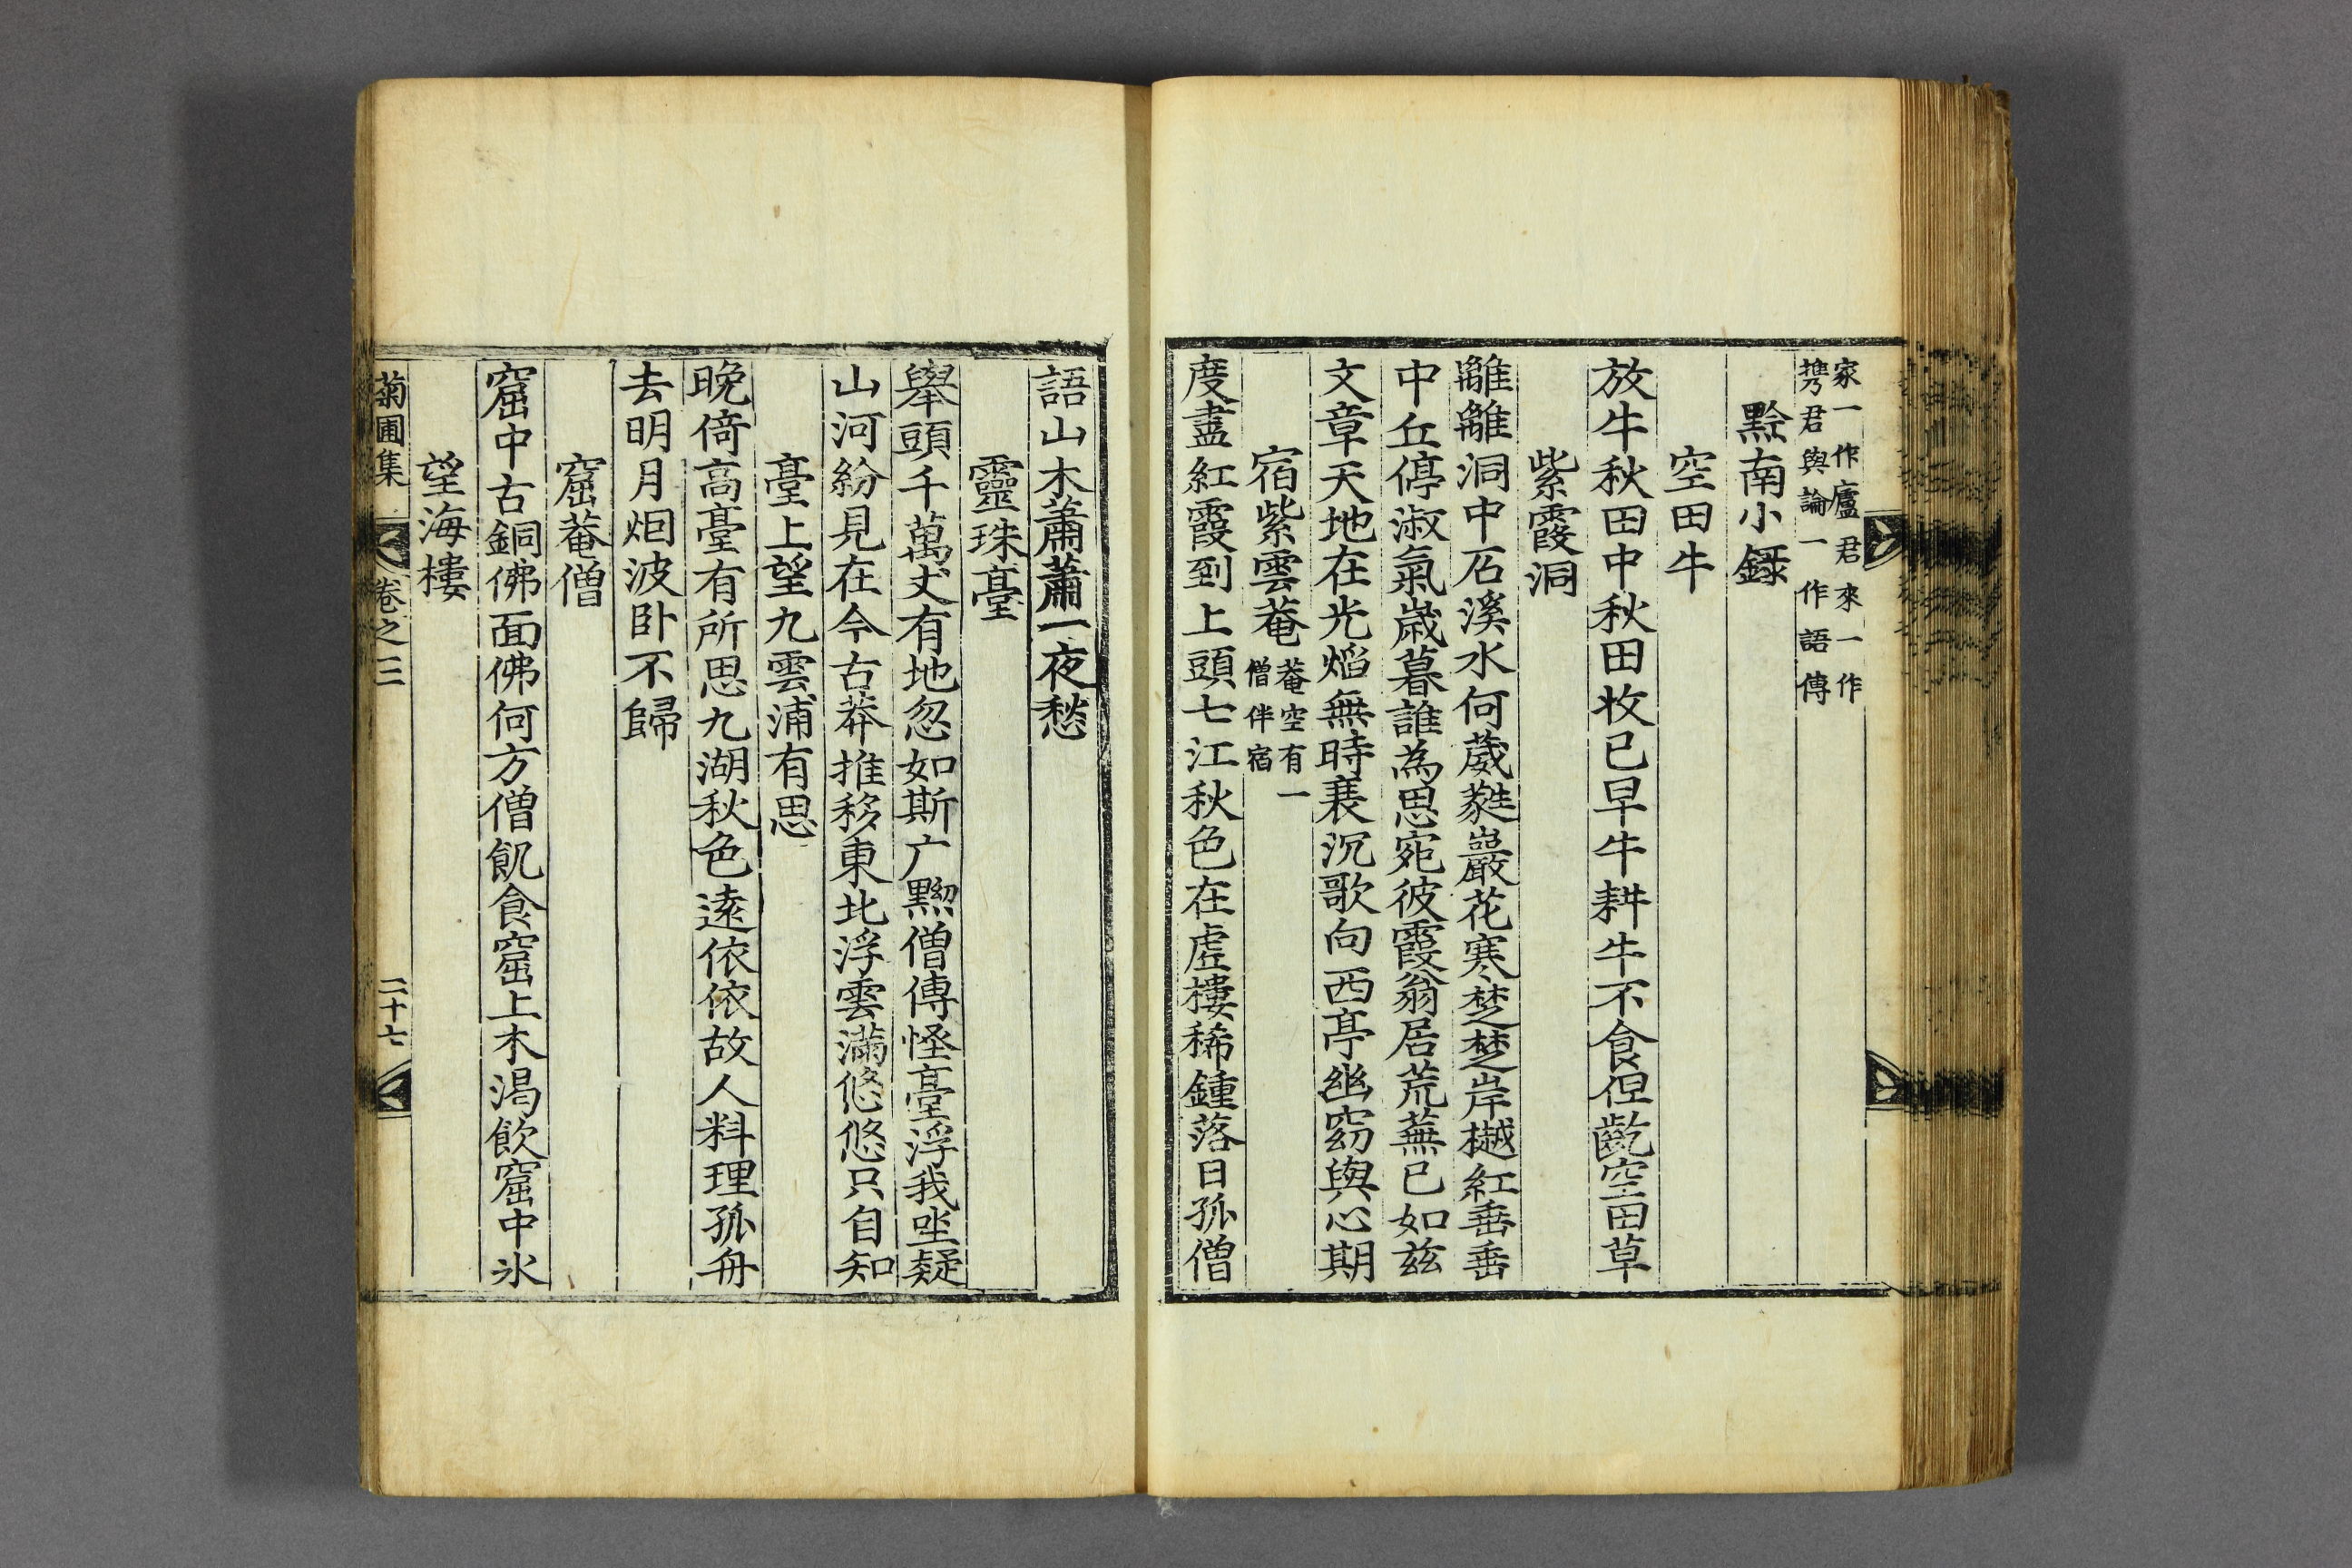 家一作廬君來一作
携君與論一作語傳
黔南小錄
空田牛
放牛秋田中秋田牧已早牛耕牛不食但齕空田草
紫霞洞
離離洞中石溪水何葳蕤巖花寒楚楚岸樾紅垂垂
中丘停淑氣歲暮誰為思宛彼霞翁居荒蕪已如茲
文章天地在光焰無時衰沉歌向西亭幽窈與心期
宿紫雲菴
菴空有一
僧伴宿
度盡紅霞到上頭七江秋色在虛樓稀鍾落日孤僧
語山木蕭蕭一夜愁
靈珠臺
舉頭千萬丈有地忽如斯广黟僧傳怪臺浮我坐疑
山河紛見在今古莽推移東北浮雲滿悠悠只自知
臺上望九雲浦有思
晚倚高臺有所思九湖秋色遠依依故人料理孤舟
去明月烟波卧不歸
窟菴僧
窟中古銅佛面佛何方僧飢食窟上木渴飲窟中氷
望海樓
菊圃集
卷之三
二十七